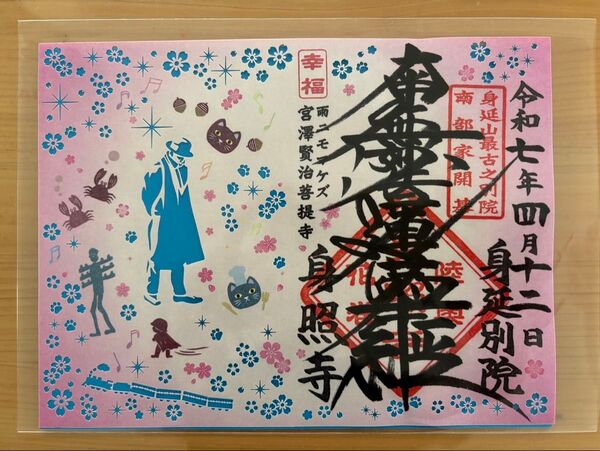 令和七年四月十二日
身延別院
身延山最古之別院
南部家開基
南無妙法蓮華経
幸福
雨ニモマケズ
宮澤賢治菩提寺
身照寺